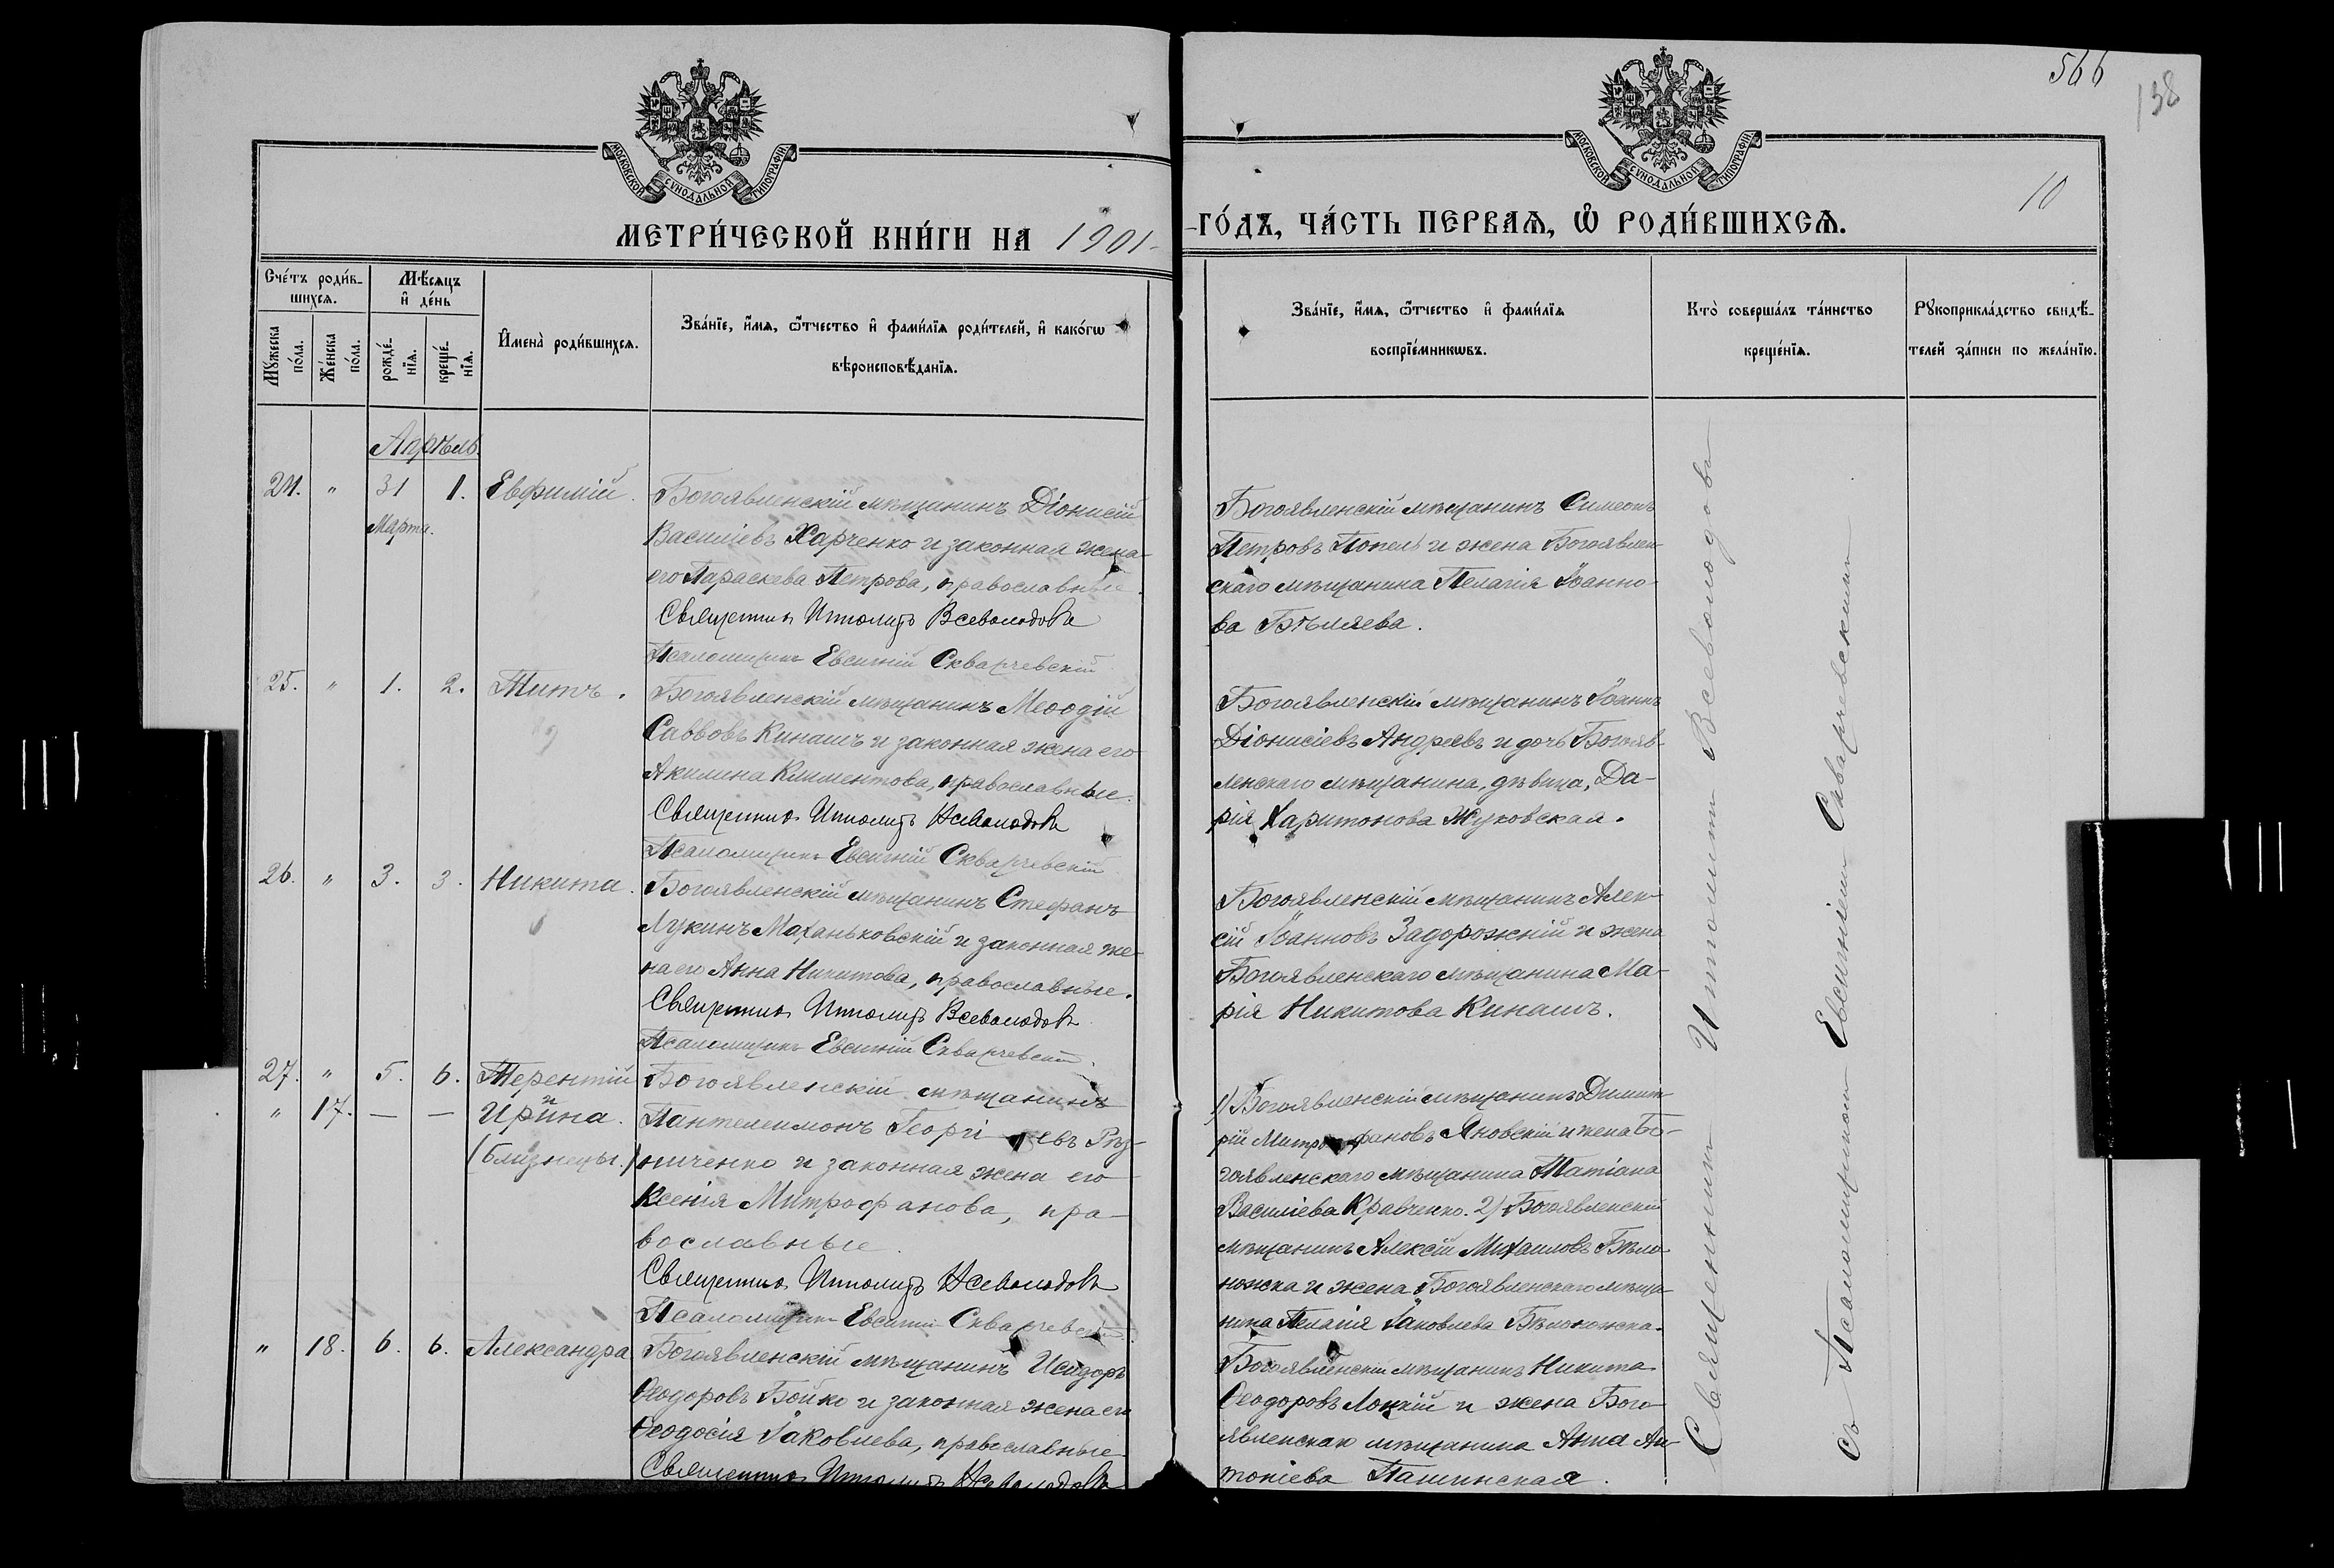 566
138
10
МОСКОВСКОЙ СУНОДАЛЬНОЙ ТИПОГРАФІИ
МОСКОВСКОЙ СУНОДАЛЬНОЙ ТИПОГРАФІИ
МЕТРИ́ЧЕСКОЙ КНИ́ГИ НА 1901-
-ГО́ДЪ, ЧА́СТЬ ПЕРВАѦ, Ѿ РОДИ́ВШИХСѦ.
Сче́тъ роди́в-
шихсѧ.
Мꙋжеска
по́ла.
Же́нска
по́ла.
Мѣ́сѧцъ
и҆ де́нь
рожде́-
нїѧ.
креще́-
нїѧ.
И҆мена̀ роди́вшихсѧ.
Зва́нїе, и҆́мѧ, ѻ҆́тчество и҆ фами́лїѧ роди́телей, и҆ како́гѡ
вѣроисповѣ́данїѧ.
Зва́нїе, и҆́мѧ, ѻ҆́тчество и҆ фами́лїѧ
воспрїе́мникѡвъ.
Кто̀ соверша́лъ та́инство
креще́нїѧ.
Рꙋкоприкла́дство свидѣ́-
телей за́писи по жела́нїю.
Апрѣль.
24. " 31 1. Евфимій.
Марта.
Богоявленскій мѣщанинъ Діонисій
Василіевъ Харченко и законная жена
его Параскева Петрова, православные.
Священникъ Ипполитъ Всеволодовъ
Псаломщикъ Евсигній Скварчевскій
Богоявленскій мѣщанинъ Симеонъ
Петровъ Попель и жена Богоявлен-
скаго мѣщанина Пелагія Іоанно-
ва Бѣляева.
25. " 1. 2. Титъ.
Богоявленскій мѣщанинъ Меѳодій
Саввовъ Кинашъ и законная жена его
Акилина Климентова, православные.
Священникъ Ипполитъ Всеволодовъ
Псаломщикъ Евсигній Скварчевскій
Богоявленскій мѣщанинъ Іоаннъ
Діонисіевъ Андреевъ и дочь Богояв-
ленскаго мѣщанина, дѣвица, Да-
рія Харитонова Жуковская.
26. " 3. 3. Никита.
Богоявленскій мѣщанинъ Стефанъ
Лукинъ Маханьковскій и законная же-
на его Анна Никитова, православные.
Священникъ Ипполитъ Всеволодовъ
Псаломщикъ Евсигній Скварчевскій
Богоявленскій мѣщанинъ Алек-
сій Іоанновъ Задорожній и жена
Богоявленскаго мѣщанина Ма-
рія Никитова Кинашъ.
27. " 5. 6. Терентій
" 17. — — Ирина.
(близнецы.)
Богоявленскій мѣщанинъ
Пантелеимонъ Георгіевъ Рѣз-
ниченко и законная жена его
Ксенія Митрофанова, пра-
вославные.
Священникъ Ипполитъ Всеволодовъ
Псаломщикъ Евсигній Скварчевскій
1) Богоявленскій мѣщанинъ Димит-
рій Митрофановъ Яновскій и жена Бо-
гоявленскаго мѣщанина Татіана
Василіева Кравченко. 2) Богоявленскій
мѣщанинъ Алексій Михаиловъ Бѣло-
ножка и жена Богоявленскаго мѣща-
нина Пелагія Іаковлева Бѣлоножка.
" 18. 6. 6. Александра
Богоявленскій мѣщанинъ Исидоръ
Ѳеодоровъ Бойко и законная жена его
Ѳеодосія Іаковлева, православные
Священникъ Ипполитъ Всеволодовъ
Богоявленскій мѣщанинъ Никита
Ѳеодоровъ Лоцкій и жена Бого-
явленскаго мѣщанина Анна Ан-
тоніева Пашинская.
Священникъ Ипполитъ Всеволодовъ
съ Псаломщикомъ Евсигніемъ Скварчевскимъ